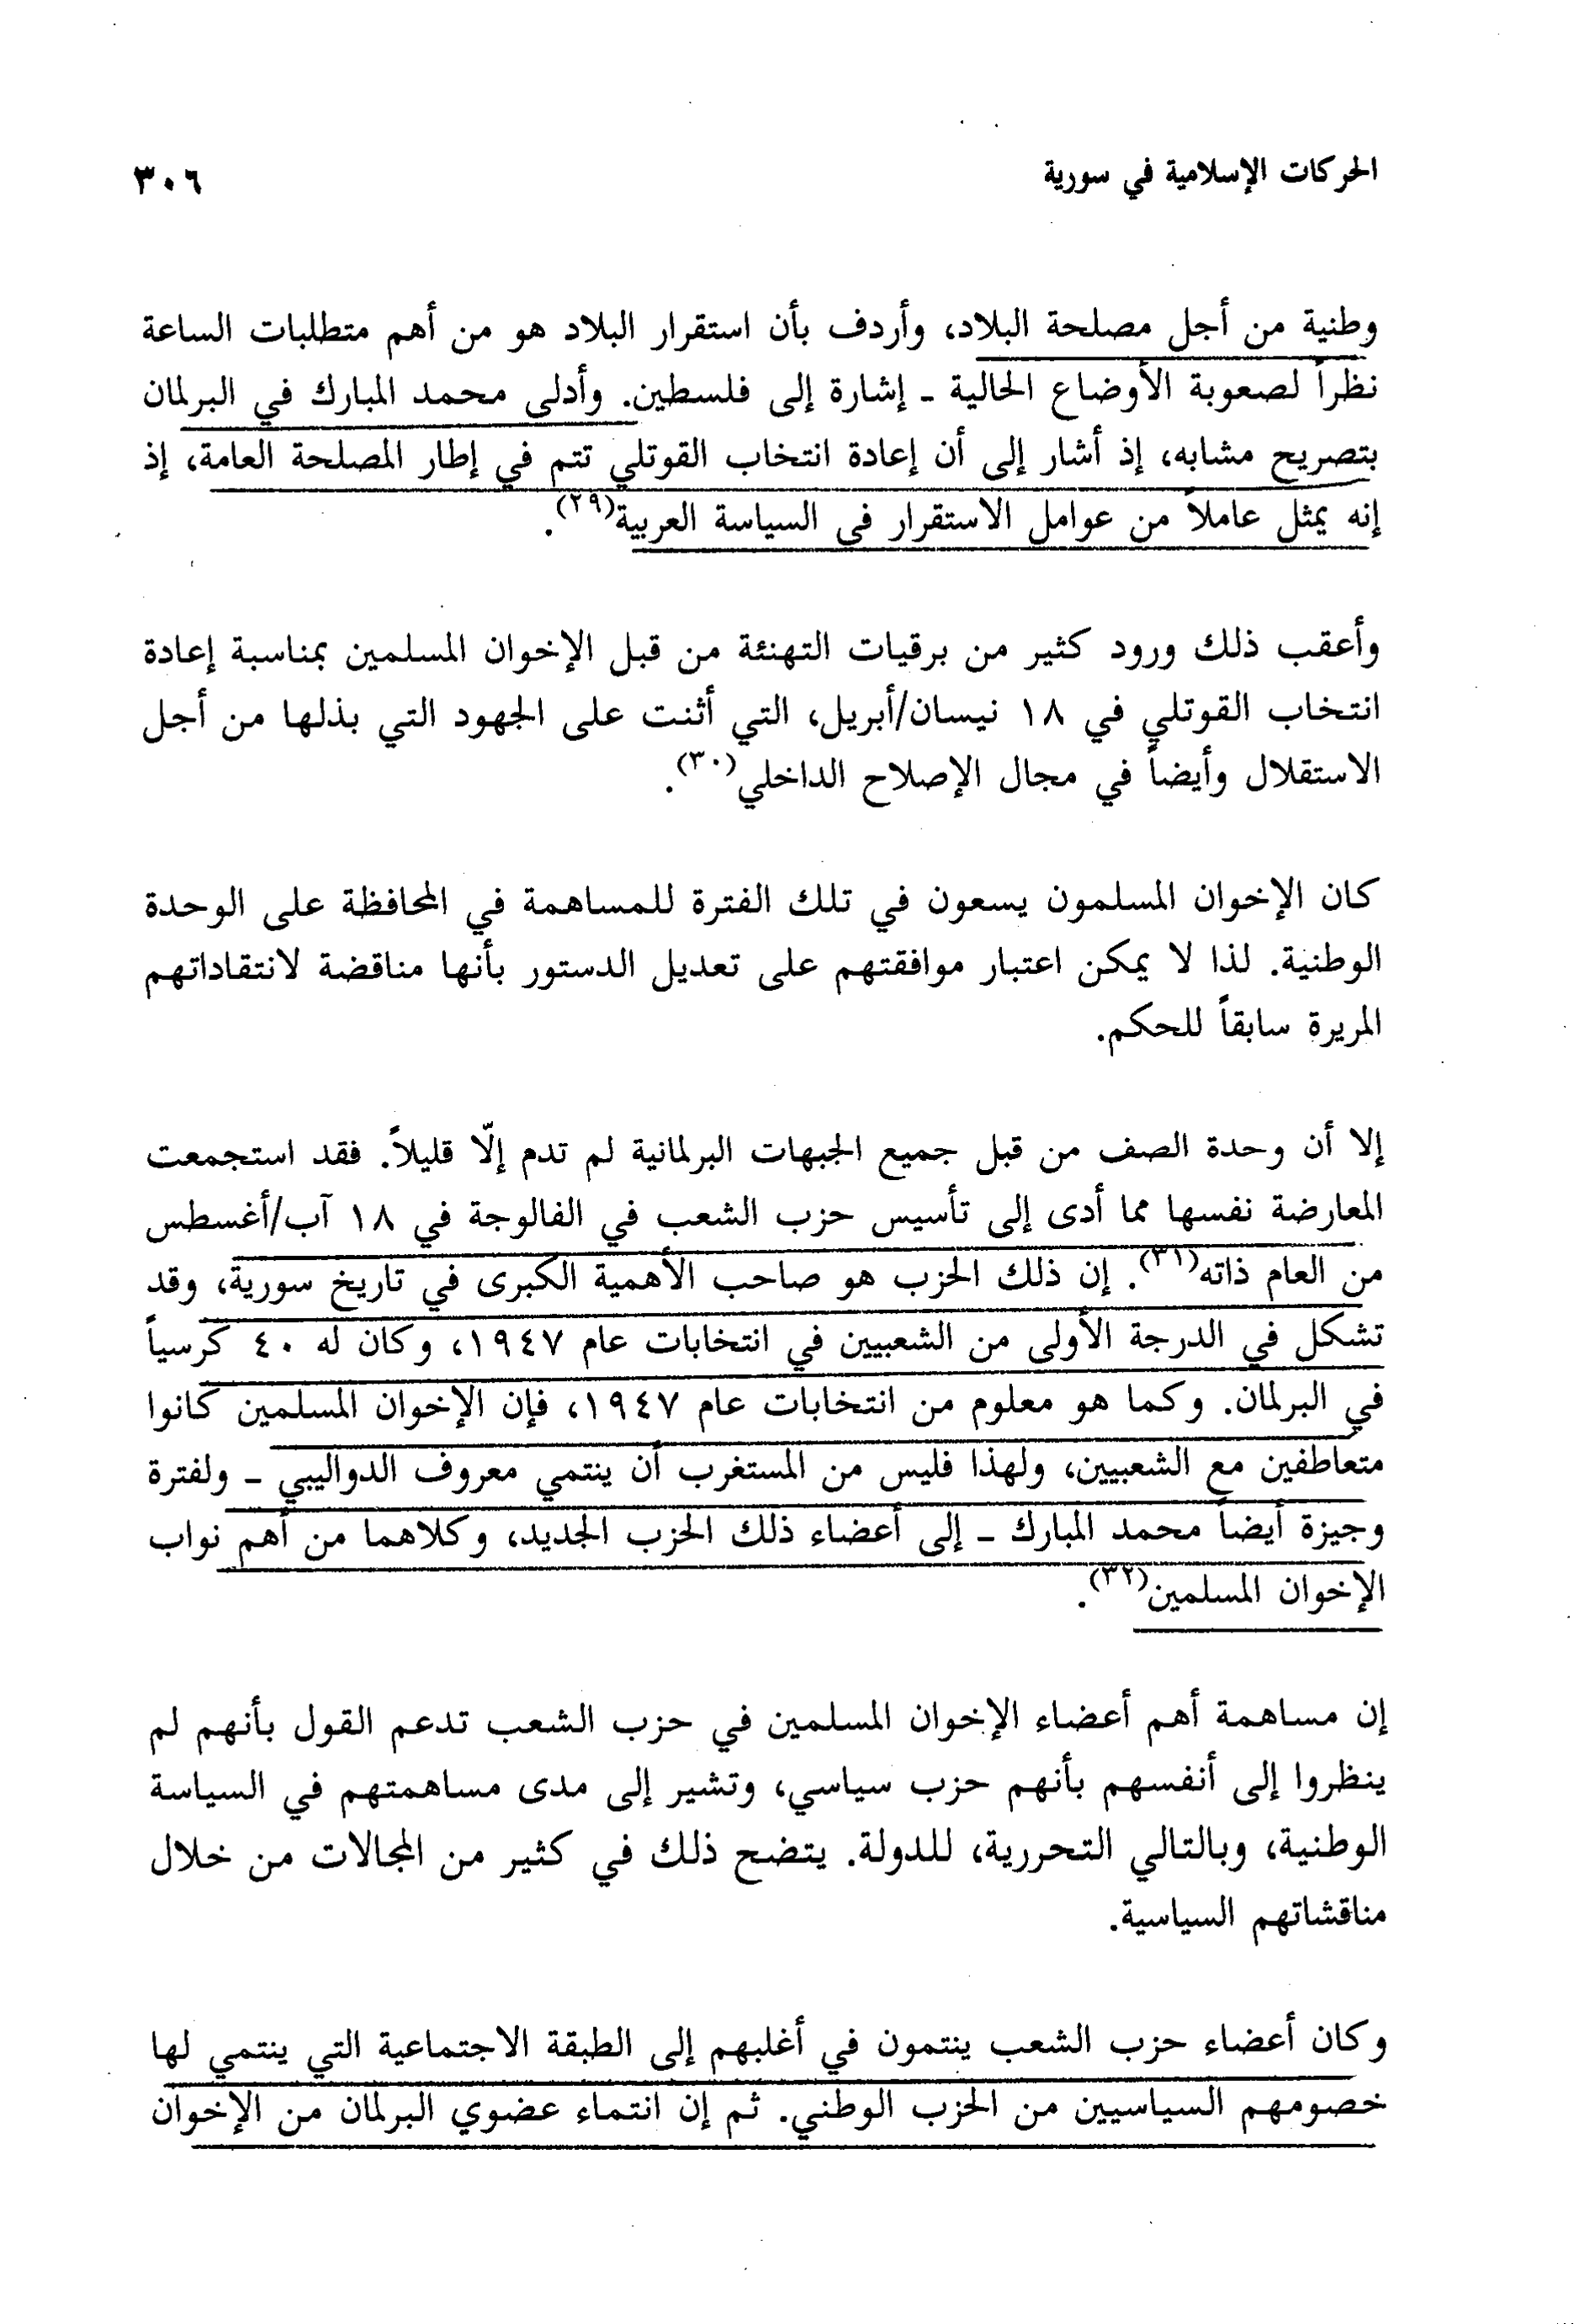 الحركات الإسلامية في سورية
٣٠٦
وطنية من أجل مصلحة البلاد، وأردف بأن استقرار البلاد هو من أهم متطلبات الساعة
نظراً لصعوبة الأوضاع الحالية ـ إشارة إلى فلسطين. وأدلى محمد المبارك في البرلمان
بتصريح مشابه، إذ أشار إلى أن إعادة انتخاب القوتلي تتم في إطار المصلحة العامة، إذ
إنه يمثل عاملاً من عوامل الاستقرار في السياسة العربية(٢٩).
وأعقب ذلك ورود كثير من برقيات التهنئة من قبل الإخوان المسلمين بمناسبة إعادة
انتخاب القوتلي في ١٨ نيسان/أبريل، التي أثنت على الجهود التي بذلها من أجل
الاستقلال وأيضاً في مجال الإصلاح الداخلي(٣٠).
كان الإخوان المسلمون يسعون في تلك الفترة للمساهمة في المحافظة على الوحدة
الوطنية. لذا لا يمكن اعتبار موافقتهم على تعديل الدستور بأنها مناقضة لانتقاداتهم
المريرة سابقاً للحكم.
إلا أن وحدة الصف من قبل جميع الجبهات البرلمانية لم تدم إلّا قليلاً. فقد استجمعت
المعارضة نفسها مما أدى إلى تأسيس حزب الشعب في الفالوجة في ١٨ آب/أغسطس
من العام ذاته(٣١). إن ذلك الحزب هو صاحب الأهمية الكبرى في تاريخ سورية، وقد
تشكل في الدرجة الأولى من الشعبيين في انتخابات عام ١٩٤٧، وكان له ٤٠ كرسياً
في البرلمان. وكما هو معلوم من انتخابات عام ١٩٤٧، فإن الإخوان المسلمين كانوا
متعاطفين مع الشعبيين، ولهذا فليس من المستغرب أن ينتمي معروف الدواليبي ـ ولفترة
وجيزة أيضاً محمد المبارك ـ إلى أعضاء ذلك الحزب الجديد، وكلاهما من أهم نواب
الإخوان المسلمين(٣٢).
إن مساهمة أهم أعضاء الإخوان المسلمين في حزب الشعب تدعم القول بأنهم لم
ينظروا إلى أنفسهم بأنهم حزب سياسي، وتشير إلى مدى مساهمتهم في السياسة
الوطنية، وبالتالي التحررية، للدولة. يتضح ذلك في كثير من المجالات من خلال
مناقشاتهم السياسية.
وكان أعضاء حزب الشعب ينتمون في أغلبهم إلى الطبقة الاجتماعية التي ينتمي لها
خصومهم السياسيين من الحزب الوطني. ثم إن انتماء عضوي البرلمان من الإخوان